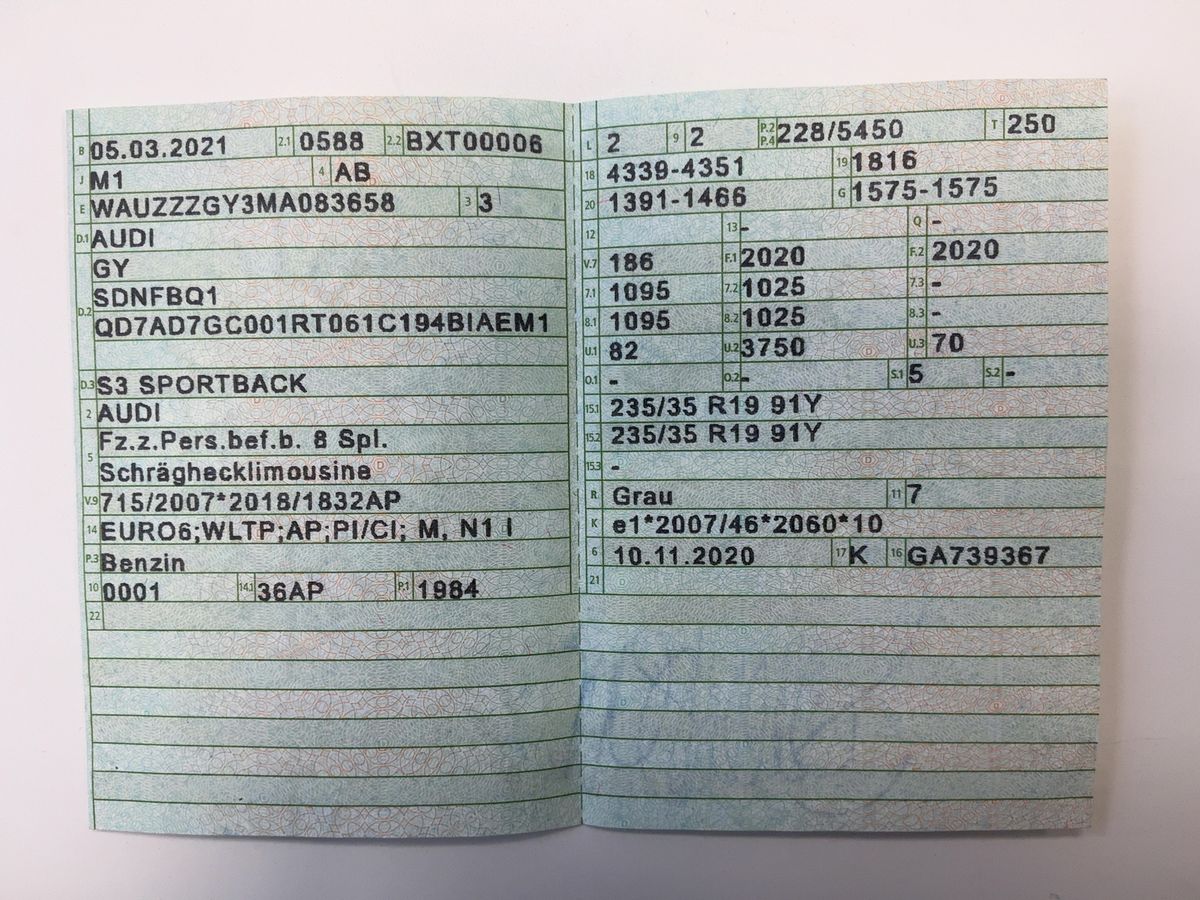 B 05.03.2021 2.1 0588 2.2 BXT00006
J M1 4 AB
E WAUZZZGY3MA083658 3 3
D.1 AUDI
D.2 GY
SDNFBQ1
QD7AD7GC001RT061C194BIAEM1
D.3 S3 SPORTBACK
2 AUDI
5 Fz.z.Pers.bef.b. 8 Spl.
Schräghecklimousine
V.9 715/2007*2018/1832AP
14 EURO6;WLTP;AP;PI/CI; M, N1 I
P.3 Benzin
10 0001 14.1 36AP P.1 1984
22
L 2 9 2 P.2 P.4 228/5450 T 250
18 4339-4351 19 1816
20 1391-1466 G 1575-1575
12 13 - Q -
V.7 186 F.1 2020 F.2 2020
7.1 1095 7.2 1025 7.3 -
8.1 1095 8.2 1025 8.3 -
U.1 82 U.2 3750 U.3 70
O.1 - O.2 - S.1 5 S.2 -
15.1 235/35 R19 91Y
15.2 235/35 R19 91Y
15.3 -
R Grau 11 7
K e1*2007/46*2060*10
6 10.11.2020 17 K 16 GA739367
21